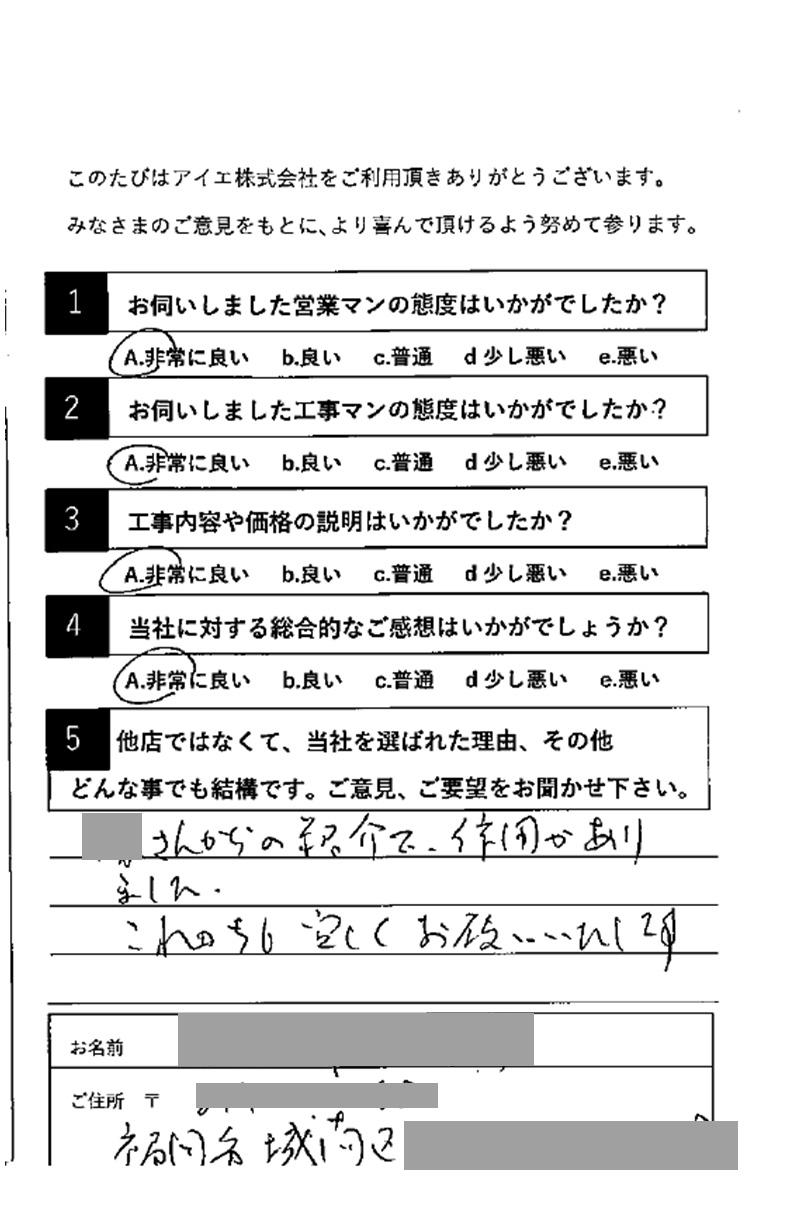 このたびはアイエ株式会社をご利用頂きありがとうございます。
みなさまのご意見をもとに、より喜んで頂けるよう努めて参ります。
1 お伺いしました営業マンの態度はいかがでしたか？
A.非常に良い b.良い c.普通 d 少し悪い e.悪い
2 お伺いしました工事マンの態度はいかがでしたか？
A.非常に良い b.良い c.普通 d 少し悪い e.悪い
3 工事内容や価格の説明はいかがでしたか？
A.非常に良い b.良い c.普通 d 少し悪い e.悪い
4 当社に対する総合的なご感想はいかがでしょうか？
A.非常に良い b.良い c.普通 d 少し悪い e.悪い
5 他店ではなくて、当社を選ばれた理由、その他
どんな事でも結構です。ご意見、ご要望をお聞かせ下さい。
さんからの紹介で、信用があり
ました.
これからも宜しくお願いいたします
お名前
ご住所 〒
福岡市城南区